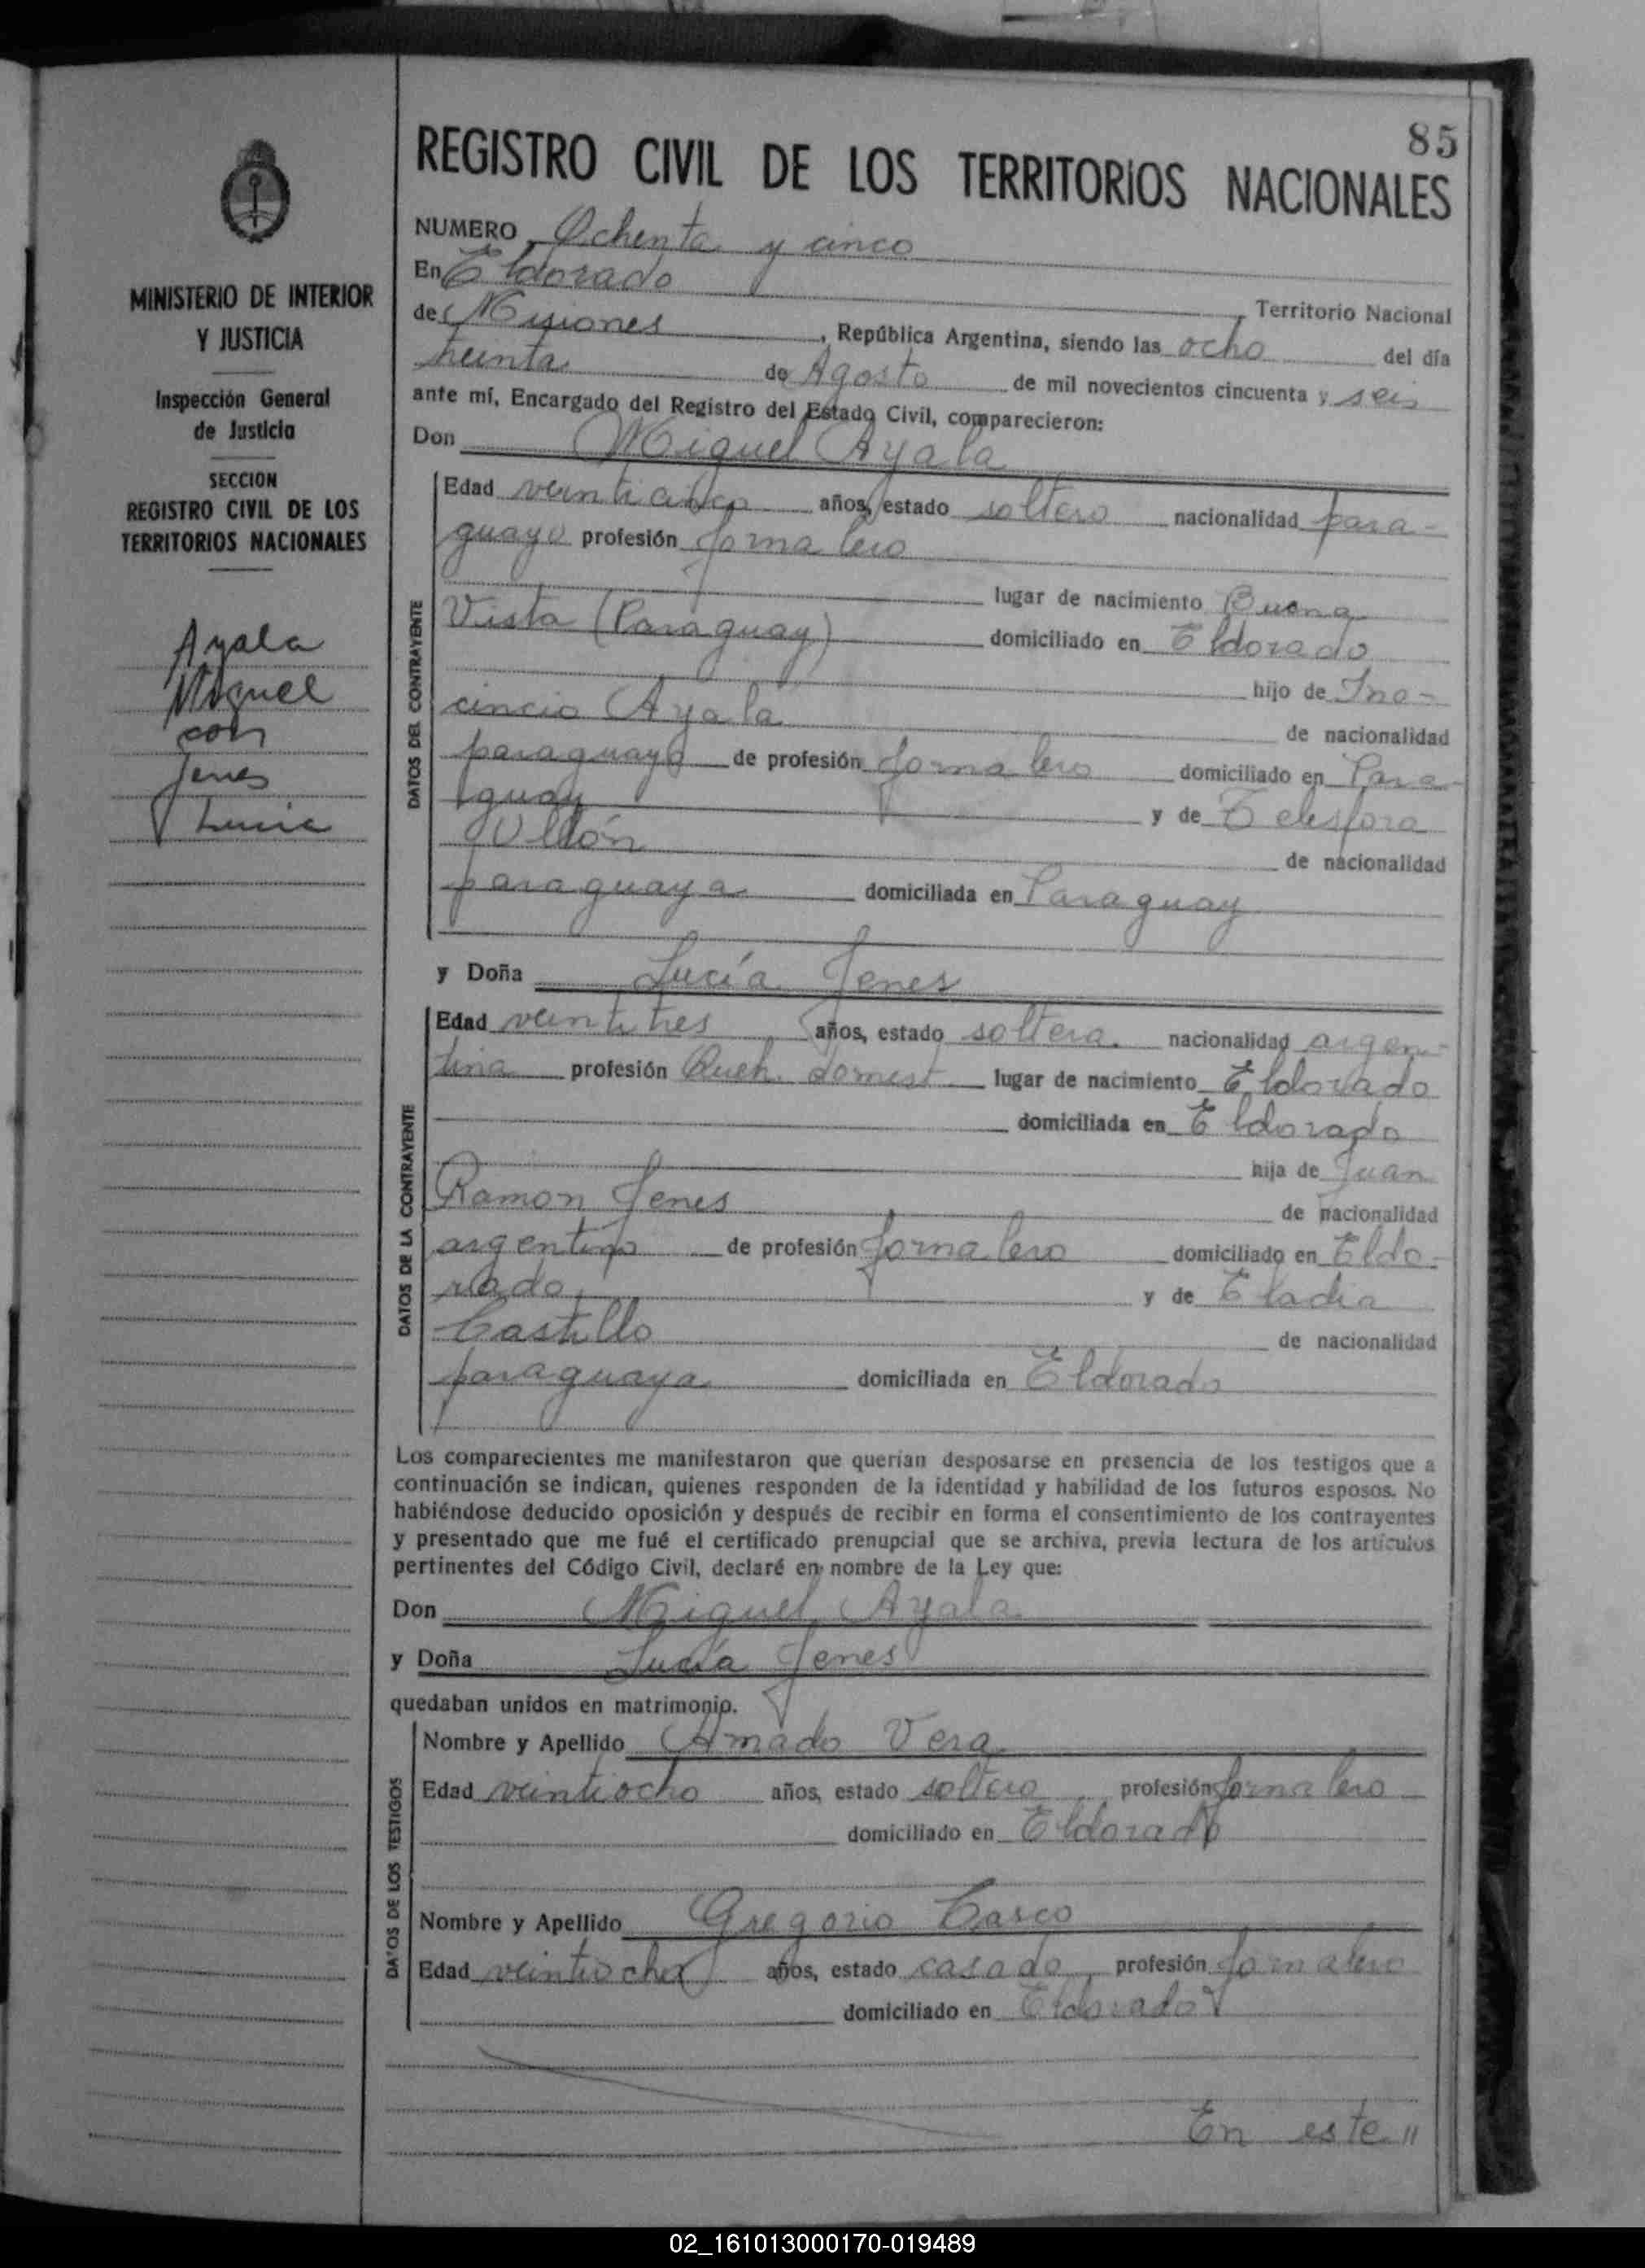 85
REGISTRO CIVIL DE LOS TERRITORIOS NACIONALES
NUMERO Ochenta y cinco
En Eldorado Territorio Nacional
de Misiones, República Argentina, siendo las ocho del día
treinta de Agosto de mil novecientos cincuenta y seis
ante mí, Encargado del Registro del Estado Civil, comparecieron:
Don Miguel Ayala
DATOS DEL CONTRAYENTE
Edad veinticinco años, estado soltero nacionalidad para-
guayo profesión Jornalero
lugar de nacimiento Buena
Vista (Paraguay) domiciliado en Eldorado
hijo de Ino-
cincio Ayala de nacionalidad
paraguayo de profesión Jornalero domiciliado en Para-
guay y de Telesfora
de nacionalidad
paraguaya domiciliada en Paraguay
y Doña Lucía Jenes
DATOS DE LA CONTRAYENTE
Edad veintitres años, estado soltera nacionalidad argen-
tina profesión Queh. domest. lugar de nacimiento Eldorado
domiciliada en Eldorado
hija de Juan
Ramon Jenes de nacionalidad
argentino de profesión Jornalero domiciliado en Eldo-
rado, y de Eladia
Castillo de nacionalidad
paraguaya domiciliada en Eldorado
Los comparecientes me manifestaron que querían desposarse en presencia de los testigos que a
continuación se indican, quienes responden de la identidad y habilidad de los futuros esposos. No
habiéndose deducido oposición y después de recibir en forma el consentimiento de los contrayentes
y presentado que me fué el certificado prenupcial que se archiva, previa lectura de los artículos
pertinentes del Código Civil, declaré en nombre de la Ley que:
Don Miguel Ayala
y Doña Lucía Jenes
quedaban unidos en matrimonio.
DATOS DE LOS TESTIGOS
Nombre y Apellido Amado Vera
Edad veintiocho años, estado soltero profesión Jornalero
domiciliado en Eldorado
Nombre y Apellido Gregorio Casco
Edad veintiocho años, estado casado, profesión Jornalero
domiciliado en Eldorado
En este "
MINISTERIO DE INTERIOR
Y JUSTICIA
Inspección General
de Justicia
SECCION
REGISTRO CIVIL DE LOS
TERRITORIOS NACIONALES
Ayala
Miguel
con
Jenes
Lucia
02_161013000170-019489